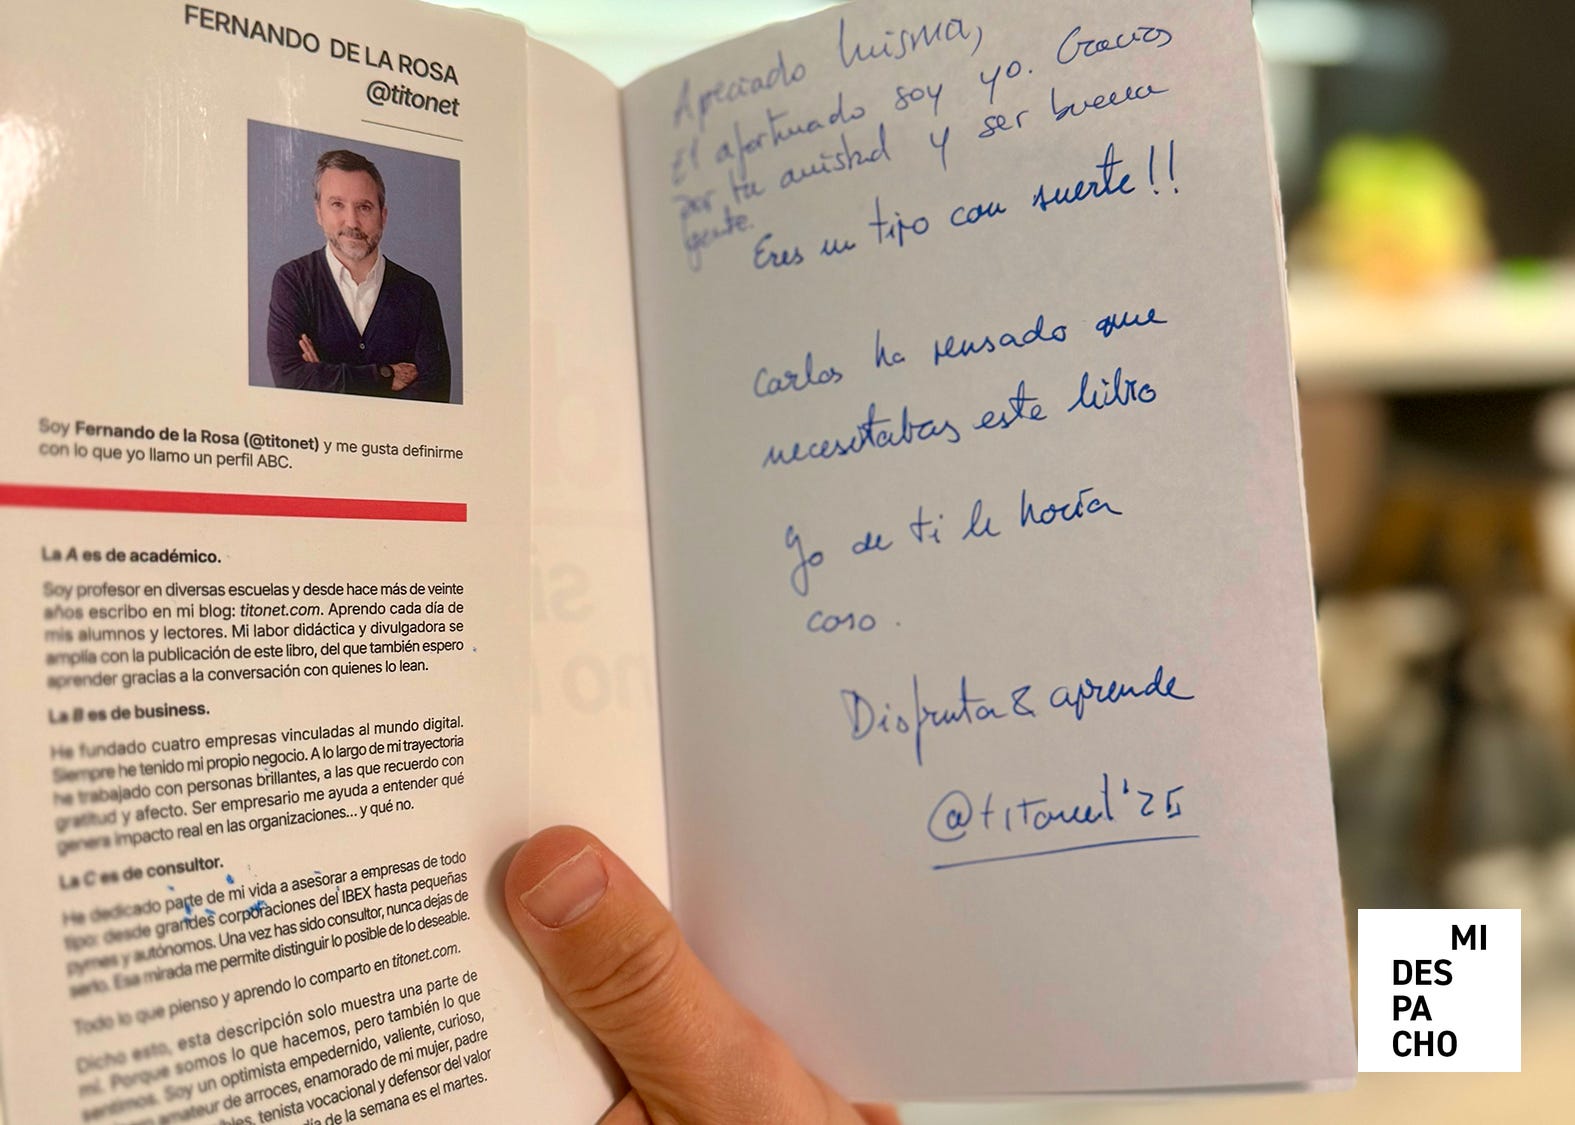 FERNANDO DE LA ROSA
@titonet
Soy Fernando de la Rosa (@titonet) y me gusta definirme
con lo que yo llamo un perfil ABC.
La A es de académico.
Soy profesor en diversas escuelas y desde hace más de veinte
años escribo en mi blog: titonet.com. Aprendo cada día de
mis alumnos y lectores. Mi labor didáctica y divulgadora se
amplía con la publicación de este libro, del que también espero
aprender gracias a la conversación con quienes lo lean.
La B es de business.
He fundado cuatro empresas vinculadas al mundo digital.
Siempre he tenido mi propio negocio. A lo largo de mi trayectoria
he trabajado con personas brillantes, a las que recuerdo con
gratitud y afecto. Ser empresario me ayuda a entender qué
genera impacto real en las organizaciones... y qué no.
La C es de consultor.
He dedicado parte de mi vida a asesorar a empresas de todo
tipo: desde grandes corporaciones del IBEX hasta pequeñas
pymes y autónomos. Una vez has sido consultor, nunca dejas de
serlo. Esa mirada me permite distinguir lo posible de lo deseable.
Todo lo que pienso y aprendo lo comparto en titonet.com.
Dicho esto, esta descripción solo muestra una parte de
mí. Porque somos lo que hacemos, pero también lo que
sentimos. Soy un optimista empedernido, valiente, curioso,
amateur de arroces, enamorado de mi mujer, padre
tenista vocacional y defensor del valor
de la semana es el martes.
Apreciado
El afortunado soy yo. Gracias
por tu amistad y ser buena
gente.
Eres un tipo con suerte!!
Carlos ha pensado que
necesitabas este libro
Yo de ti le haría
caso.
Disfruta & aprende
@titonet '25
MI
DES
PA
CHO